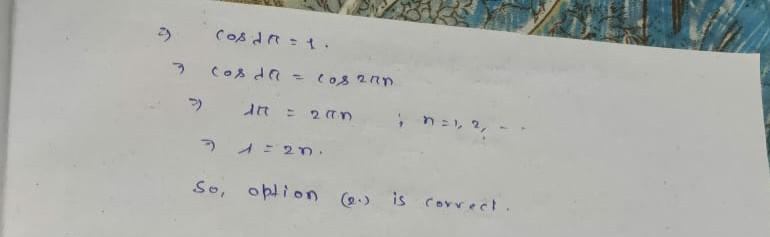 ⇒ cos λπ = 1.
⇒ cos λπ = cos 2πn
⇒ λπ = 2πn ; n = 1, 2, - -
⇒ λ = 2n.
So, option (2.) is correct.